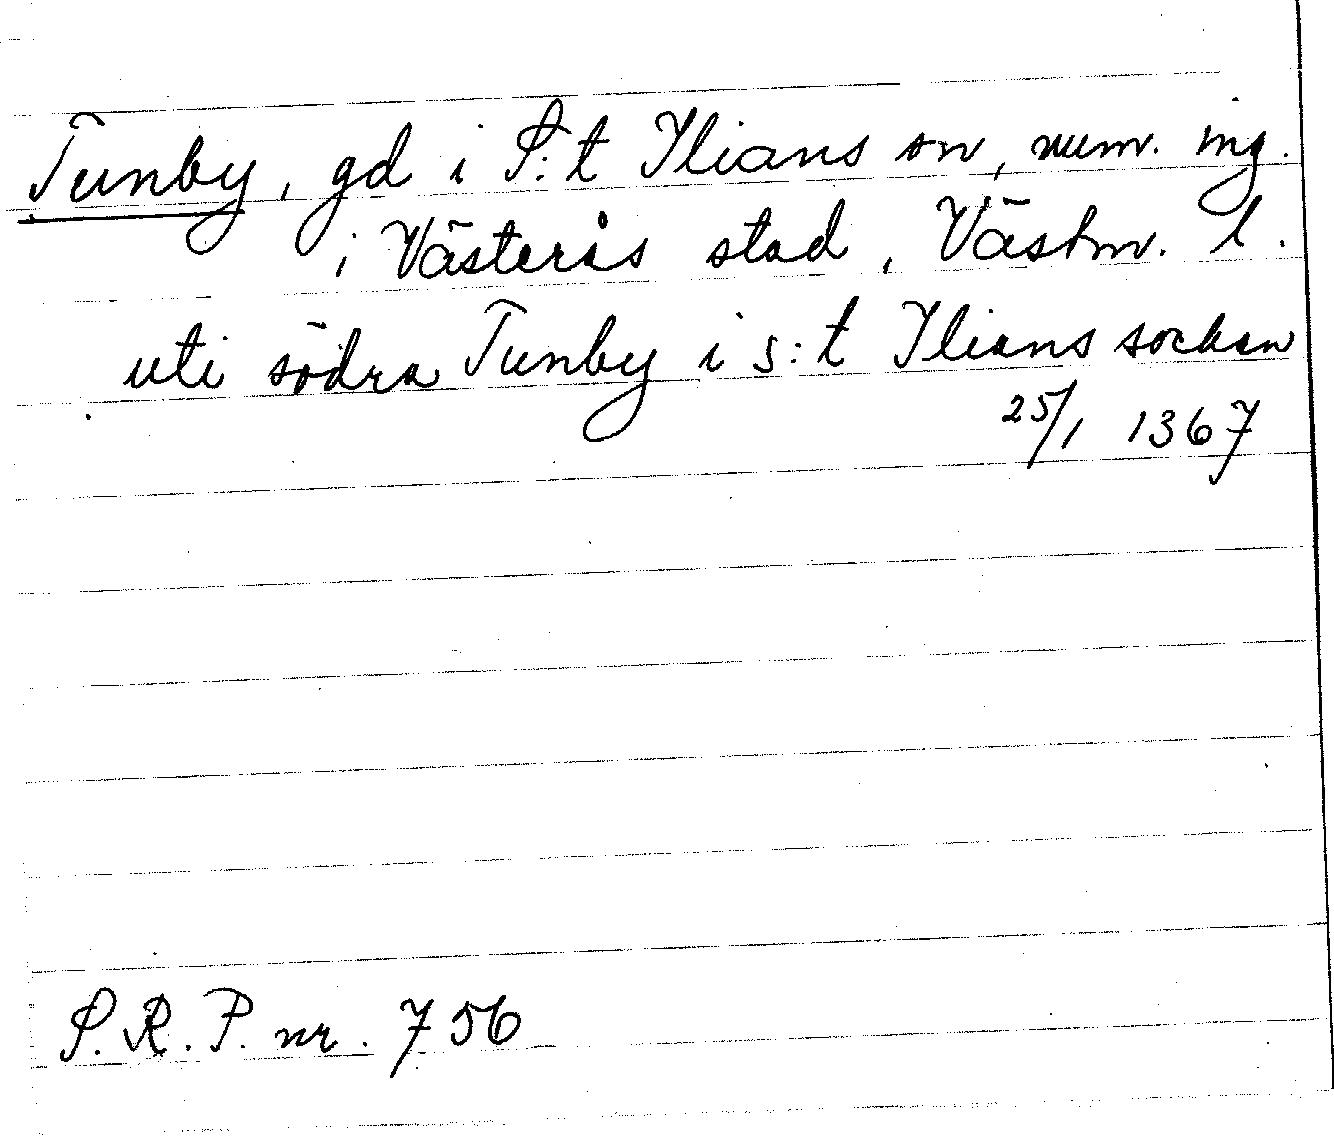 Tunby, gd i S:t Ilians sn, num. ing.
i Västerås stad, Västm. l.
uti södra Tunby i s:t Ilians sockan
25/1 1367
S.R.P. nr. 756